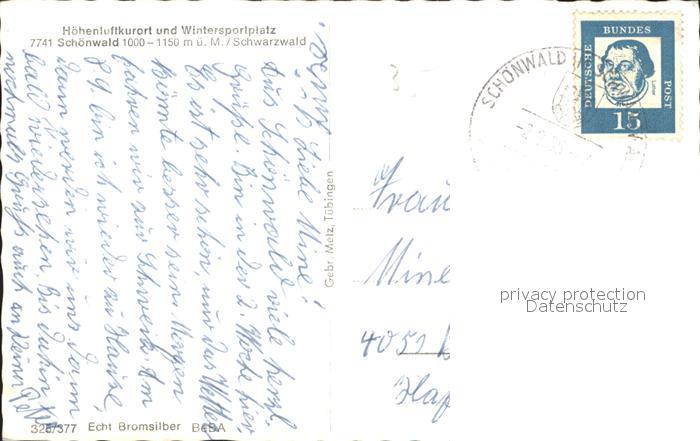 Höhenluftkurort und Wintersportplatz
7741 Schönwald 1000–1150 m ü. M./Schwarzwald
Liebe Mine!
Aus Schönwald viele herzl.
Grüße. Bin in der 2. Woche hier.
Es ist sehr schön, nur das Wetter
könnte besser sein. Morgen
fahren wir zur Schweiz. Am
bin ich wieder zu Hause,
dann werden wir uns dann
bald wiedersehen. Bis dahin
nochmals Grüße auch an Deinen
328/377 Echt Bromsilber BeBA
Gebr. Metz, Tübingen
SCHÖNWALD
DEUTSCHE BUNDESPOST
Luther
15
Frau
Mine
4051
privacy protection
Datenschutz